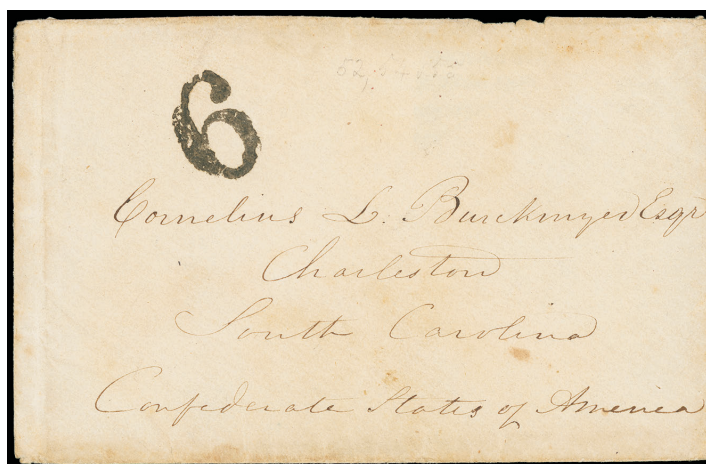 6
Cornelius L. Burckmyer Esqr
Charleston
South Carolina
Confederate States of America